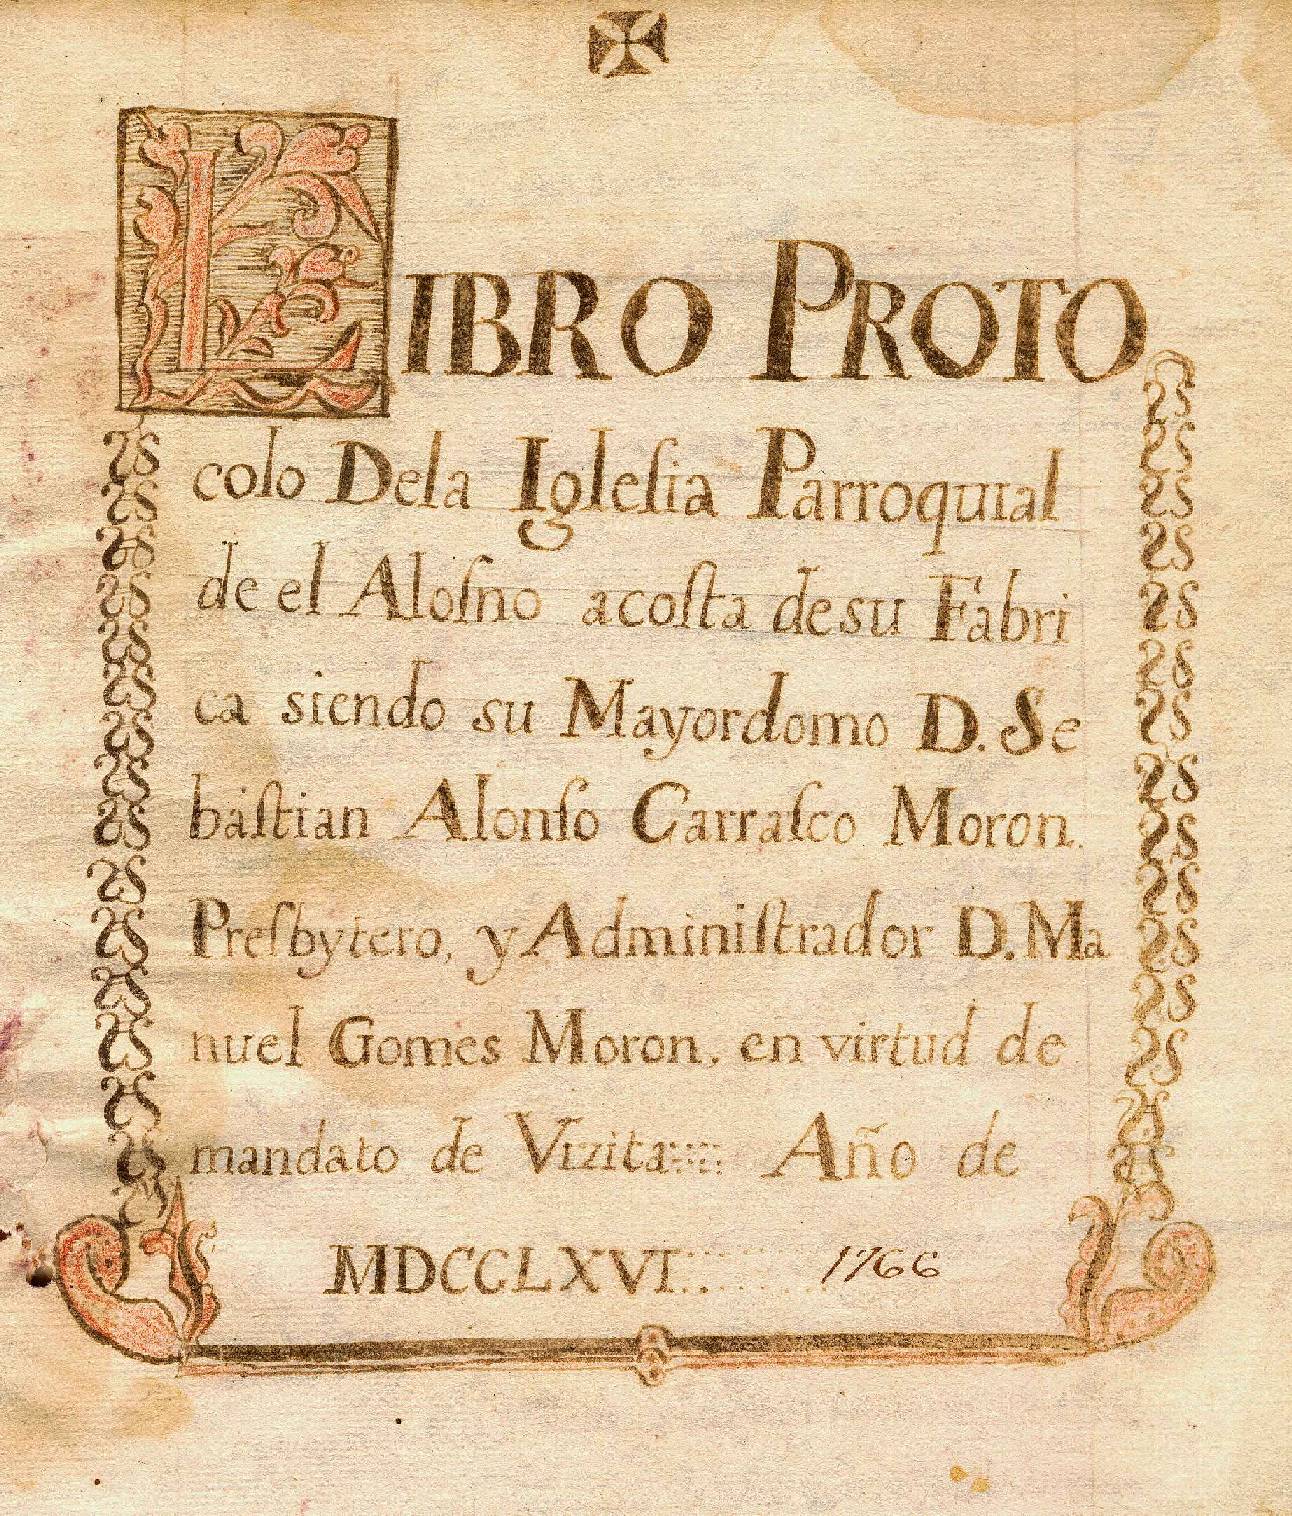 LIBRO PROTO
colo Dela Igleſia Parroquial
de el Aloſno acoſta de su Fabri
ca siendo su Mayordomo D. Se
baſtian Alonſo Carraſco Moron.
Preſbytero, y Adminiſtrador D. Ma
nuel Gomes Moron, en virtud de
mandato de Vizita::::: Año de
MDCCLXVI::::::::: 1766